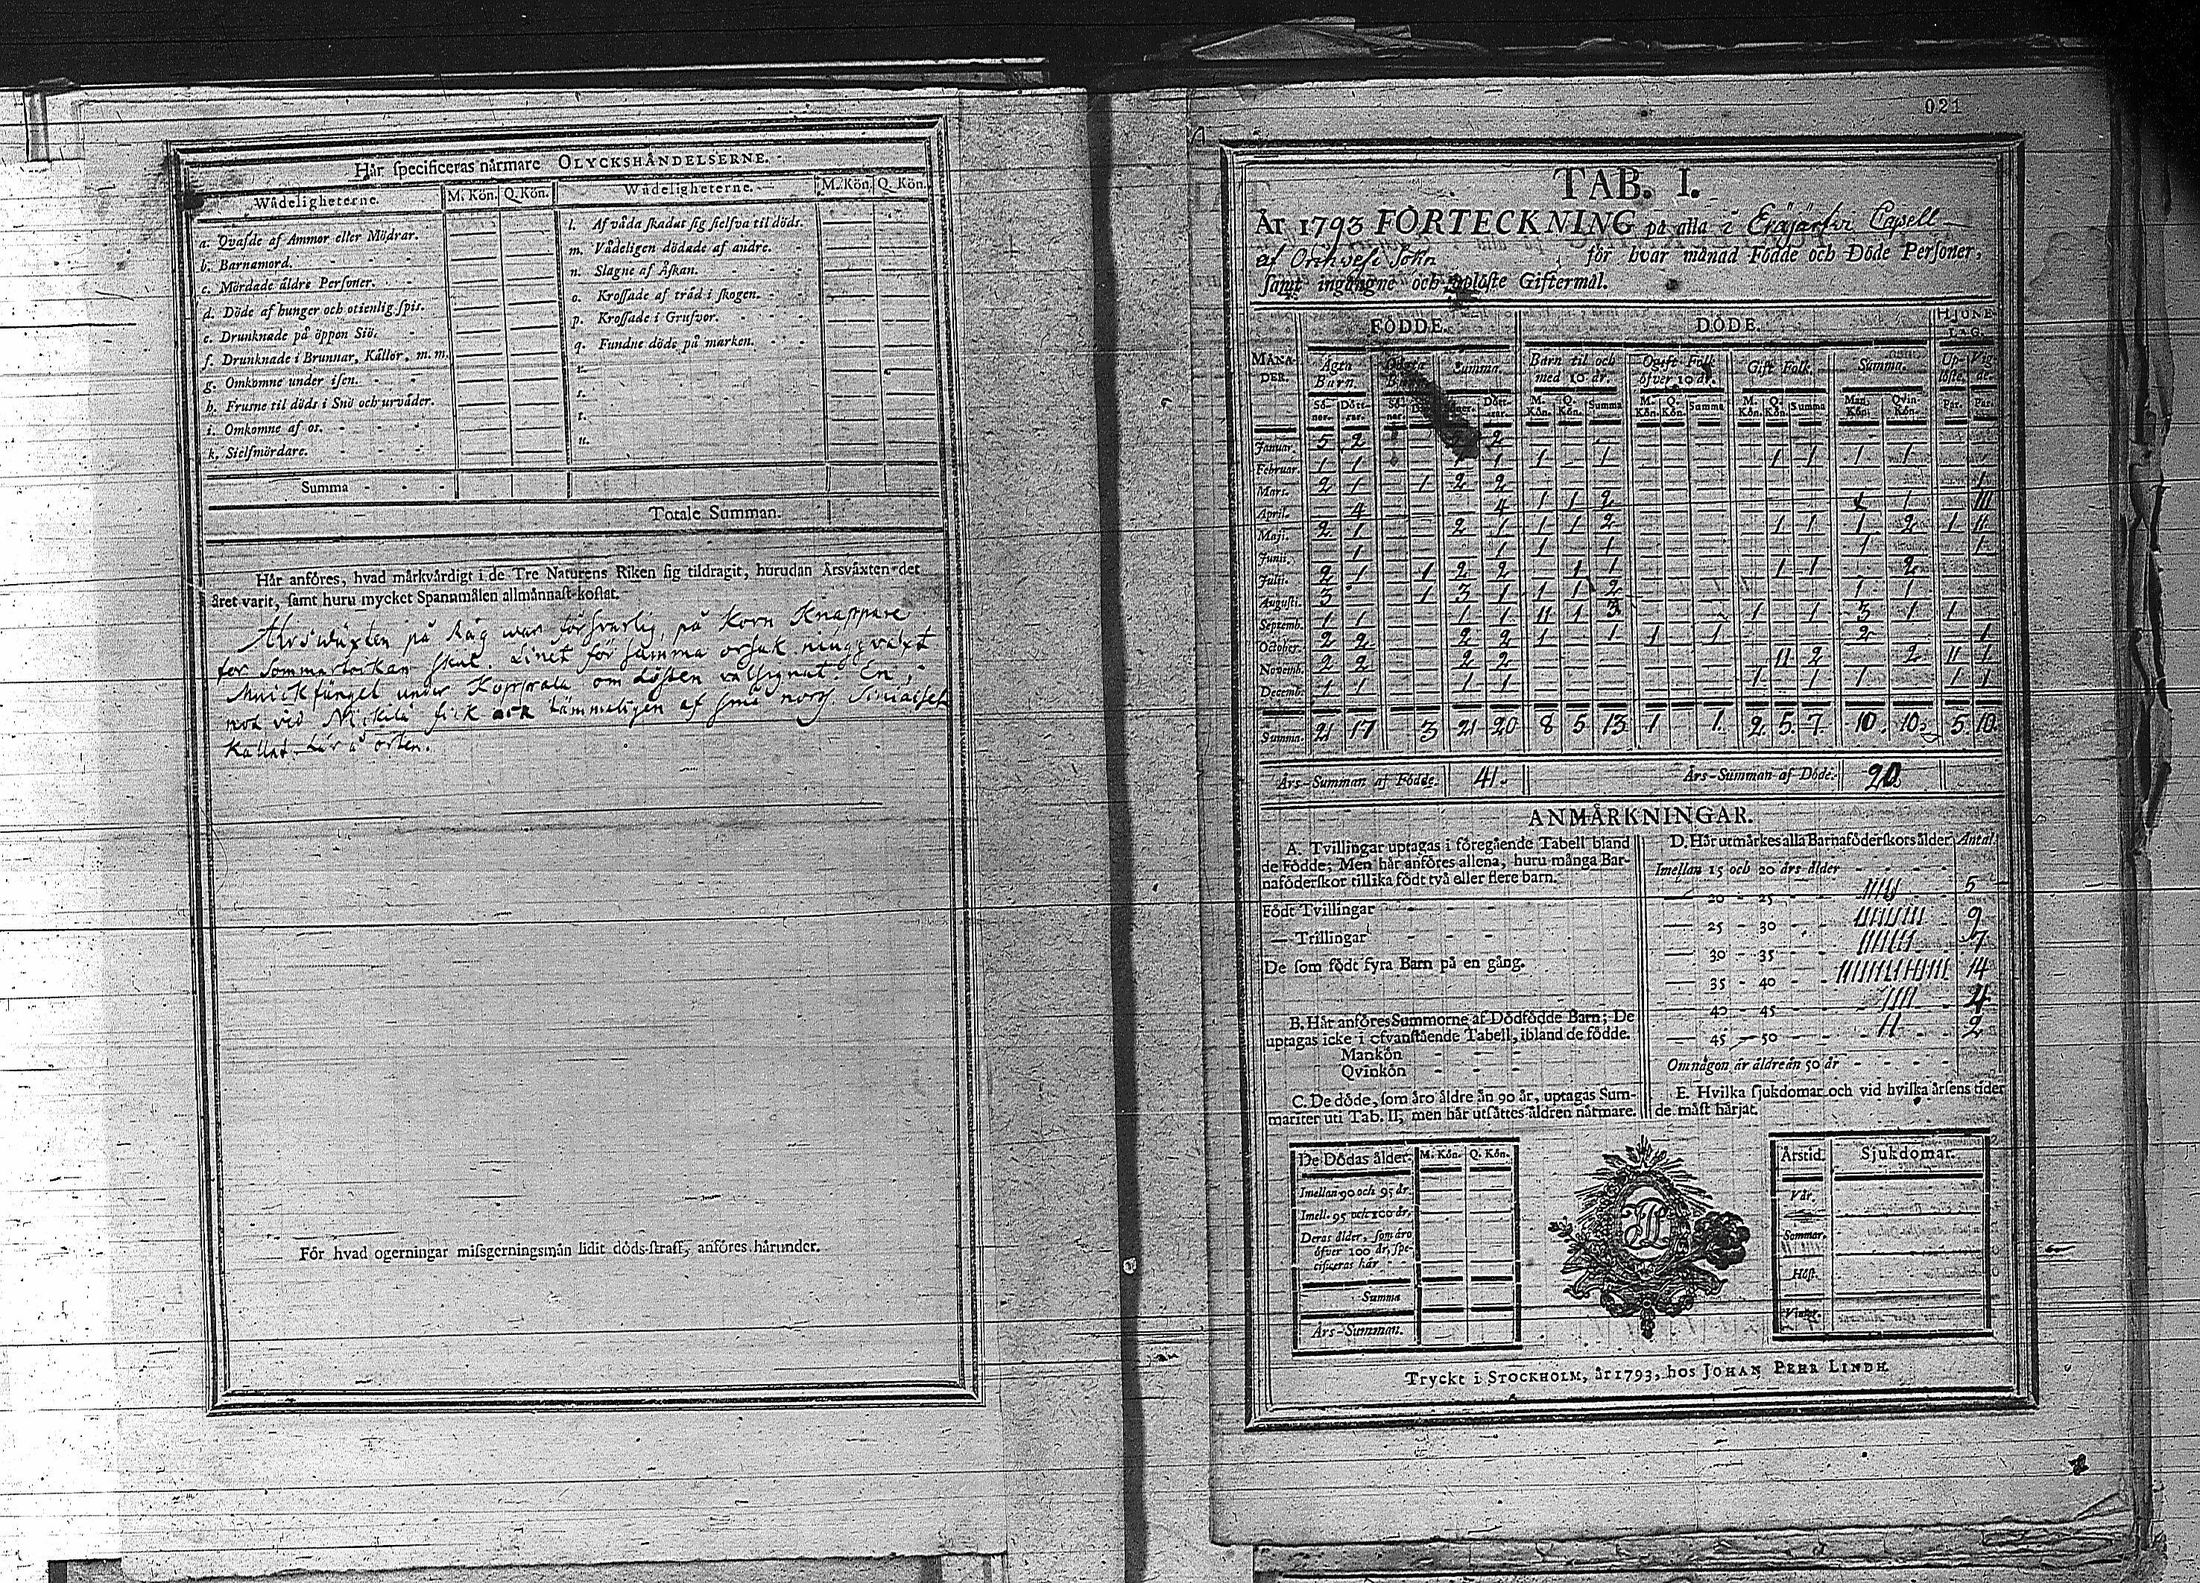 Här specificeras närmare OLYCKSHÄNDELSERNE.
Wådeligheterne. M. Kön. Q. Kön. Wådeligheterne. M. Kön. Q. Kön.
a. Qvafde af Ammor eller Mödrar.
b. Barnamord.
c. Mördade äldre Personer.
d. Döde af hunger och otienlig spis.
e. Drunknade på öppen Siö.
f. Drunknade i Brunnar, Källor, m. m.
g. Omkomne under isen.
h. Frusne til döds i Snö och urväder.
i. Omkomne af os.
k. Sielfmördare.
l. Af våda skadat sig sielfva til döds.
m. Vådeligen dödade af andre.
n. Slagne af Åskan.
o. Krossade af träd i skogen.
p. Krossade i Grufvor.
q. Fundne döde på marken.
r.
s.
t.
u.
Summa
Totale Summan.
Här anföres, hvad märkvärdigt i de Tre Naturens Riken sig tildragit, hurudan Årsväxten det
året varit, samt huru mycket Spannmålen allmännast kostat.
Årswäxten på Råg war försvarlig, på Korn Knappare
för Sommartorkan skul. Linet för samma orsak
under om Hösten välsignat. En
not vid fick ock tämmeligen af små
Kallat här å orten.
För hvad ogerningar missgerningsmän lidit döds-straff, anföres härunder.
021
TAB. I.
År 1793 FÖRTECKNING på alla i Eräjärfvi Capell
af Orihvesi Sohn för hvar månad Födde och Döde Personer,
samt ingångne och uplöste Giftermål.
MÅNADER. FÖDDE. DÖDE. HJONELAG.
Ägta Barn. Oägta Barn. Summa. Barn til och med 10 år. Ogift Folk öfver 10 år. Gift Folk. Summa. Uplöste. Vigde.
Söner. Döttrar. Söner. Döttrar. M. Kön. Q. Kön. Summa M. Kön. Q. Kön. Summa M. Kön. Q. Kön. Summa Man. Kön. Qvin. Kön. Par. Par.
Januar. 5 2 2
Februar. 1 1 1 1 1 1 1 1 1 1
Mars. 2 1 1 2 2 1
April. 4 4 1 1 2 1 1 III
Maji. 2 1 2 1 1 1 2 1 1 1 2 1 II
Junii. 1 1 1 1 1 1
Julii. 2 1 1 2 2 1 1 1 1 2
Augusti. 3 1 3 1 1 1 2 1 1
Septemb. 1 1 1 1 II 1 3 1 1 3 1 1
October. 2 2 2 2 1 1 1 1 2 1
Novemb. 2 2 2 2 II 2 2 II 1
Decemb. 1 1 1 1 1 1 1 1 1
Summa. 21 17 3 21 20 8 5 13 1 1 2 5 7 10 10 5 10
Års-Summan af Födde. 41. Års-Summan af Döde. 20
ANMÄRKNINGAR.
A. Tvillingar uptagas i föregående Tabell bland
de Födde; Men här anföres allena, huru många Bar-
naföderskor tillika födt två eller flere barn.
Födt Tvillingar
— Trillingar
De som födt fyra Barn på en gång.
B. Här anföres Summorne af Dödfödde Barn; De
uptagas icke i ofvanstående Tabell, ibland de födde.
Mankön
Qvinkön
C. De döde, som äro äldre än 90 år, uptagas Sum-
mariter uti Tab. II, men här utsättes äldren närmare.
D. Här utmärkes alla Barnaföderskors ålder Antal.
Imellan 15 och 20 års ålder
— 20 - 25 IIIII 5
— 25 - 30 9
— 30 - 35 7
— 35 - 40 14
— 40 - 45 IIII 4
— 45 - 50 II 2
Om någon är äldre än 50 år
E. Hvilka sjukdomar och vid hvilka årsens tider
de mäst härjat.
De Dödas ålder. M. Kön. Q. Kön.
Imellan 90 och 95 år
Imell. 95 och 100 år.
Deras ålder, som äro
öfver 100 år, spe-
cificeras här
Summa
Års-Summan.
Årstid. Sjukdomar.
Vår.
Sommar.
Höst.
Vinter.
Tryckt i STOCKHOLM, år 1793, hos JOHAN PEHR LINDH.